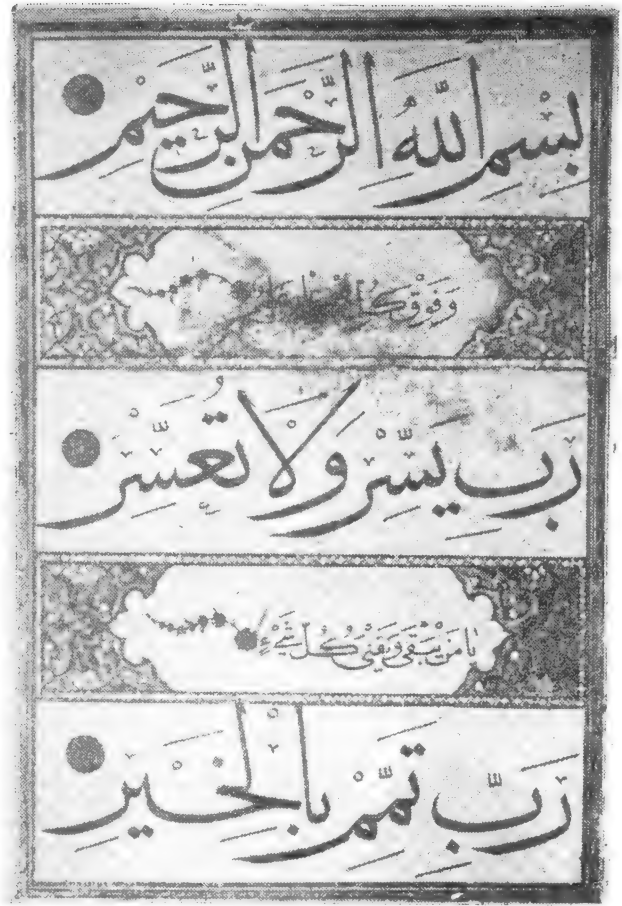 بِسْمِ اللّٰهِ الرَّحْمٰنِ الرَّحِيمِ
وَفَوْقَ كُلِّ
رَبِّ يَسِّرْ وَلَا تُعَسِّرْ
يَا مَنْ يَبْقَى وَيَفْنَى كُلُّ شَيْءٍ
رَبِّ تَمِّمْ بِالْخَيْرِ